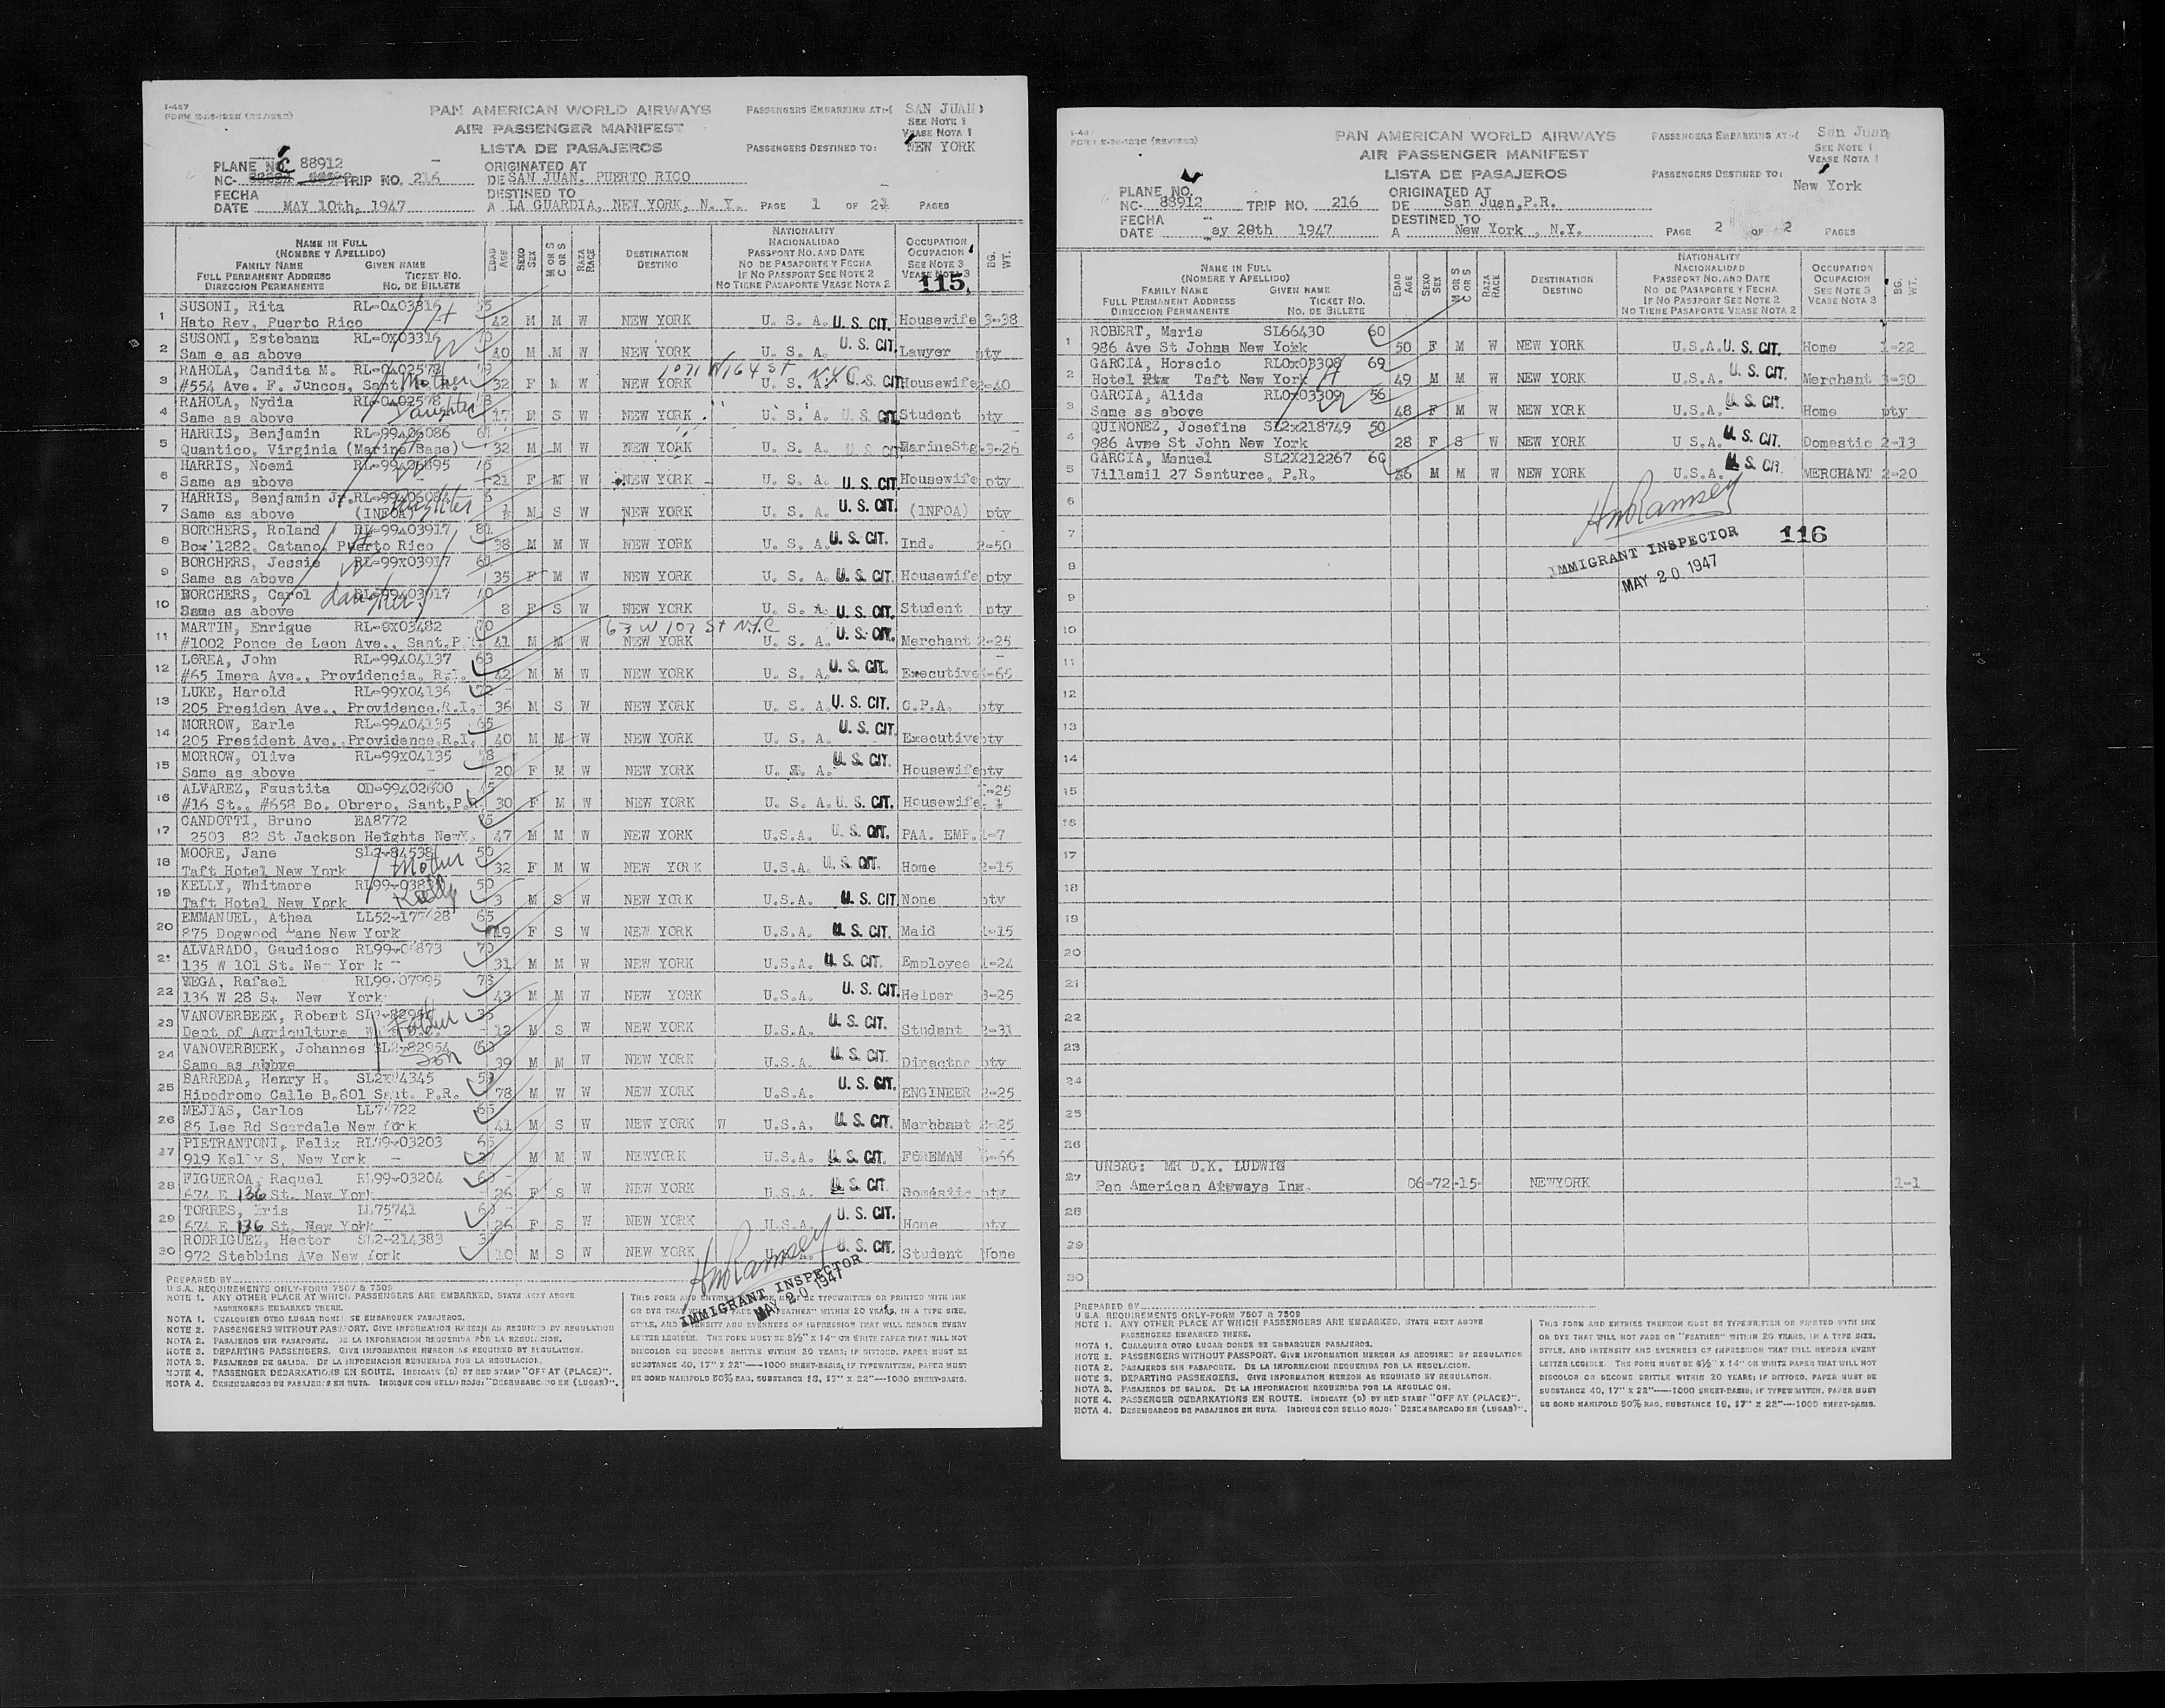 I-467
PAN AMERICAN WORLD AIRWAYS
AIR PASSENGER MANIFEST
LISTA DE PASAJEROS
PASSENGERS EMBARKING AT:-( SAN JUAN)
SEE NOTE 1
VEASE NOTA 1
PASSENGERS DESTINED TO: NEW YORK
PLANE NO. 88912
NC- TRIP NO. 216
ORIGINATED AT
DE SAN JUAN, PUERTO RICO
FECHA
DATE MAY 10th, 1947
DESTINED TO
A LA GUARDIA, NEW YORK, N. Y. PAGE 1 OF 2 PAGES
NAME IN FULL
(NOMBRE Y APELLIDO)
FAMILY NAME GIVEN NAME
FULL PERMANENT ADDRESS TICKET NO.
DIRECCION PERMANENTE NO. DE BILLETE
EDAD AGE
SEXO SEX
M OR S C OR S
RAZA RACE
DESTINATION
DESTINO
NATIONALITY
NACIONALIDAD
PASSPORT NO. AND DATE
NO DE PASAPORTE Y FECHA
IF NO PASSPORT SEE NOTE 2
NO TIENE PASAPORTE VEASE NOTA 2
OCCUPATION
OCUPACION
SEE NOTE 3
VEASE NOTA 3
115
BG. WT.
1 SUSONI, Rita RL-0403316
Hato Rey, Puerto Rico 42 M M W NEW YORK U. S. A. U. S. CIT. Housewife 3-38
2 SUSONI, Estebann RL-0X03316
Sam e as above 40 M M W NEW YORK U. S. A. U. S. CIT. Lawyer pty
3 RAHOLA, Candita M. RL-0402578
#554 Ave. F. Juncos, Sant. Mother 32 F M W NEW YORK U. S. A. U. S. CIT. Housewife 2-40
1071 W 164 St N.Y.C.
4 RAHOLA, Nydia RL-0402578
Same as above Daughter 17 M S W NEW YORK U. S. A. U. S. CIT. Student pty
5 HARRIS, Benjamin RL-99X06086
Quantico, Virginia (Marine Base) 32 M M W NEW YORK U. S. A. U. S. CIT MarineStg. 3-26
6 HARRIS, Noemi
Same as above 21 F M W NEW YORK U. S. A. U. S. CIT. Housewife pty
7 HARRIS, Benjamin Jr.
Same as above (INFOA) M S W NEW YORK U. S. A. U. S. CIT. (INFOA) pty
8 BORCHERS, Roland RL-99X03917 81
Box 1282, Catano, Puerto Rico 38 M M W NEW YORK U. S. A. U. S. CIT. Ind. 2-50
9 BORCHERS, Jessie RL-99X03917
Same as above 35 F M W NEW YORK U. S. A. U. S. CIT. Housewife pty
10 BORCHERS, Carol daughter
Same as above 8 F S W NEW YORK U. S. A. U. S. CIT. Student pty
11 MARTIN, Enrique RL-0X03482 70
#1002 Ponce de Leon Ave., Sant.P.R. 41 M M W NEW YORK U. S. A. U. S. CIT. Merchant 2-25
63 W 107 St N.Y.C
12 LOREA, John RL-99X04137 63
#65 Imera Ave., Providencia, R.I. 42 M M W NEW YORK U. S. A. U. S. CIT. Executive
13 LUKE, Harold RL-99X04136 72
205 Presiden Ave., Providence.R.I. 36 M S W NEW YORK U. S. A. U. S. CIT. C.P.A. pty
14 MORROW, Earle RL-99X04135 65
205 President Ave., Providence,R.I. 40 M M W NEW YORK U. S. A. U. S. CIT. Executive pty
15 MORROW, Olive RL-99X04135
Same as above 20 F M W NEW YORK U. S. A. U. S. CIT. Housewife pty
16 ALVAREZ, Faustita
#16 St., #658 Bo. Obrero, Sant.P.R. 30 F M W NEW YORK U. S. A. U. S. CIT. Housewife
17 CANDOTTI, Bruno EA8772
2503 82 St Jackson Heights NewY. 47 M M W NEW YORK U.S.A. U. S. CIT. PAA. EMP. 1-7
18 MOORE, Jane 50
Taft Hotel New York Mother 32 F M W NEW YORK U.S.A. U. S. CIT. Home 2-15
19 KELLY, Whitmore 50
Taft Hotel New York 3 M S W NEW YORK U.S.A. U. S. CIT. None pty
20 EMMANUEL, Athea 65
875 Dogwood Lane New York 19 F S W NEW YORK U.S.A. U. S. CIT. Maid 1-15
21 ALVARADO, Gaudioso 70
135 W 101 St. New Yor k 31 M M W NEW YORK U.S.A. U. S. CIT. Employee 1-24
22 VEGA, Rafael RL99-07995 78
136 W 28 St New York 43 M M W NEW YORK U.S.A. U. S. CIT. Helper 3-25
23 VANOVERBEEK, Robert Father
Dept of Agriculture 12 M S W NEW YORK U.S.A. U. S. CIT. Student 2-31
24 VANOVERBEEK, Johannes SL2-82954 Son
Same as above 39 M M W NEW YORK U.S.A. U. S. CIT. Director pty
25 BARREDA, Henry H.
Hipodromo Calle B.801 Sant. P.R. 78 M W W NEW YORK U.S.A. U. S. CIT. ENGINEER 2-25
26 MEJIAS, Carlos 65
85 Lee Rd Scardale New York 41 M S W NEW YORK W U.S.A. U. S. CIT. Merhbant 2-25
27 PIETRANTONI, Felix RL99-03203
919 Kelly S. New York M M W NEWYORK U.S.A. U. S. CIT. FOREMAN
28 FIGUEROA, Raquel RL99-03204
674 E 136 St. New York 26 F S W NEW YORK U.S.A. U. S. CIT Domestic pty
29 TORRES, Iris LL75741
674 E 136 St. New York 26 F S W NEW YORK U.S.A. U. S. CIT. Home pty
30 RODRIGUEZ, Hector SL2-214383
972 Stebbins Ave New York 10 M S W NEW YORK U.S.A. U. S. CIT. Student None
HmRamsey
IMMIGRANT INSPECTOR
MAY 20 1947
PREPARED BY
U.S.A. REQUIREMENTS ONLY-FORM 7507 & 7509
NOTE 1. ANY OTHER PLACE AT WHICH PASSENGERS ARE EMBARKED, STATE NEXT ABOVE
PASSENGERS EMBARKED THERE.
NOTA 1. CUALQUIER OTRO LUGAR DONDE SE EMBARQUEN PASAJEROS.
NOTE 2. PASSENGERS WITHOUT PASSPORT. GIVE INFORMATION HEREON AS REQUIRED BY REGULATION
NOTA 2. PASAJEROS SIN PASAPORTE. DE LA INFORMACION REQUERIDA POR LA REGULACION.
NOTE 3. DEPARTING PASSENGERS. GIVE INFORMATION HEREON AS REQUIRED BY REGULATION.
NOTA 3. PASAJEROS DE SALIDA. DE LA INFORMACION REQUERIDA POR LA REGULACION.
NOTE 4. PASSENGER DEBARKATIONS EN ROUTE. INDICATE (D) BY RED STAMP "OFF AT (PLACE)".
NOTA 4. DESEMBARCOS DE PASAJEROS EN RUTA. INDIQUE CON SELLO ROJO: "DESEMBARCADO EN (LUGAR)".
THIS FORM AND ENTRIES THEREON MUST BE TYPEWRITTEN OR PRINTED WITH INK
OR DYE THAT WILL NOT FADE OR "FEATHER" WITHIN 20 YEARS, IN A TYPE SIZE,
STYLE, AND INTENSITY AND EVENNESS OF IMPRESSION THAT WILL RENDER EVERY
LETTER LEGIBLE. THE FORM MUST BE 8½" X 14" ON WHITE PAPER THAT WILL NOT
DISCOLOR OR BECOME BRITTLE WITHIN 20 YEARS; IF DITTOED, PAPER MUST
SUBSTANCE 40, 17" X 22"----1000 SHEET-BASIS; IF TYPEWRITTEN, PAPER MUST
BE BOND MANIFOLD 50% RAG, SUBSTANCE 16, 17" X 22"----1000 SHEET-BASIS.
PAN AMERICAN WORLD AIRWAYS
AIR PASSENGER MANIFEST
LISTA DE PASAJEROS
PASSENGERS EMBARKING AT:-( San Juan
SEE NOTE 1
VEASE NOTA 1
PASSENGERS DESTINED TO:
New York
PLANE NO.
NC- 88912 TRIP NO. 216
ORIGINATED AT
DE San Juan,P.R.
FECHA
DATE ay 20th 1947
DESTINED TO
A New York , N.Y. PAGE 2 OF 2 PAGES
NAME IN FULL
(NOMBRE Y APELLIDO)
FAMILY NAME GIVEN NAME
FULL PERMANENT ADDRESS TICKET NO.
DIRECCION PERMANENTE NO. DE BILLETE
EDAD AGE
SEXO SEX
M OR S C OR S
RAZA RACE
DESTINATION
DESTINO
NATIONALITY
NACIONALIDAD
PASSPORT NO. AND DATE
NO DE PASAPORTE Y FECHA
IF NO PASSPORT SEE NOTE 2
NO TIENE PASAPORTE VEASE NOTA 2
OCCUPATION
OCUPACION
SEE NOTE 3
VEASE NOTA 3
BG. WT.
1 ROBERT, Maria SL66430 60
986 Ave St Johns New York 50 F M W NEW YORK U.S.A. U. S. CIT. Home 1-22
2 GARCIA, Horacio RL0x03308 69
Hotel Taft New York 49 M M W NEW YORK U.S.A. U. S. CIT. Merchant 3-30
3 GARCIA, Alida RL0x03309 56
Same as above 48 F M W NEW YORK U.S.A. U. S. CIT. Home pty
4 QUINONEZ, Josefina SL2x218749 50
986 Avee St John New York 28 F S W NEW YORK U.S.A. U. S. CIT. Domestic 2-13
5 GARCIA, Manuel SL2X212267 60
Villamil 27 Santurce, P.R. 36 M M W NEW YORK U.S.A. U. S. CIT. MERCHANT 2-20
6
HmRamsey
7
116
IMMIGRANT INSPECTOR
8
MAY 20 1947
9
10
11
12
13
14
15
16
17
18
19
20
21
22
23
24
25
26
27 UNBAG: MR D.K. LUDWIG
Pan American Airways Inc. 06-72-15- NEWYORK 1-1
28
29
30
PREPARED BY
U.S.A. REQUIREMENTS ONLY-FORM 7507 & 7509
NOTE 1. ANY OTHER PLACE AT WHICH PASSENGERS ARE EMBARKED, STATE NEXT ABOVE
PASSENGERS EMBARKED THERE.
NOTA 1. CUALQUIER OTRO LUGAR DONDE SE EMBARQUEN PASAJEROS.
NOTE 2. PASSENGERS WITHOUT PASSPORT. GIVE INFORMATION HEREON AS REQUIRED BY REGULATION
NOTA 2. PASAJEROS SIN PASAPORTE. DE LA INFORMACION REQUERIDA POR LA REGULACION.
NOTE 3. DEPARTING PASSENGERS. GIVE INFORMATION HEREON AS REQUIRED BY REGULATION.
NOTA 3. PASAJEROS DE SALIDA. DE LA INFORMACION REQUERIDA POR LA REGULACION.
NOTE 4. PASSENGER DEBARKATIONS EN ROUTE. INDICATE (D) BY RED STAMP "OFF AT (PLACE)".
NOTA 4. DESEMBARCOS DE PASAJEROS EN RUTA. INDIQUE CON SELLO ROJO: "DESEMBARCADO EN (LUGAR)".
THIS FORM AND ENTRIES THEREON MUST BE TYPEWRITTEN OR PRINTED WITH INK
OR DYE THAT WILL NOT FADE OR "FEATHER" WITHIN 20 YEARS, IN A TYPE SIZE,
STYLE, AND INTENSITY AND EVENNESS OF IMPRESSION THAT WILL RENDER EVERY
LETTER LEGIBLE. THE FORM MUST BE 8½" X 14" ON WHITE PAPER THAT WILL NOT
DISCOLOR OR BECOME BRITTLE WITHIN 20 YEARS; IF DITTOED, PAPER MUST
SUBSTANCE 40, 17" X 22"----1000 SHEET-BASIS; IF TYPEWRITTEN, PAPER MUST
BE BOND MANIFOLD 50% RAG, SUBSTANCE 16, 17" X 22"----1000 SHEET-BASIS.